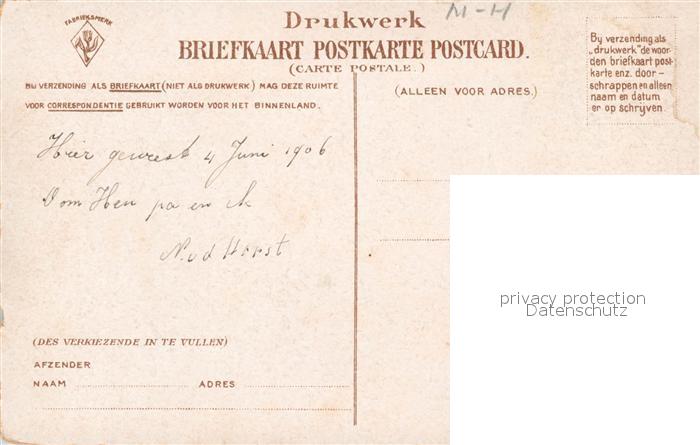 FABRIEKSMERK
Drukwerk
M-H
BRIEFKAART POSTKARTE POSTCARD.
(CARTE POSTALE.)
BIJ VERZENDING ALS BRIEFKAART (NIET ALS DRUKWERK) MAG DEZE RUIMTE
VOOR CORRESPONDENTIE GEBRUIKT WORDEN VOOR HET BINNENLAND.
(ALLEEN VOOR ADRES.)
By verzending als
„drukwerk" de woor-
den briefkaart post-
karte enz. door-
schrappen en alleen
naam en datum
er op schryven.
Hier geweest 4 Juni 1906
Oom Hen pa en ik
N. v d Horst
privacy protection
Datenschutz
(DES VERKIEZENDE IN TE VULLEN)
AFZENDER
NAAM ADRES